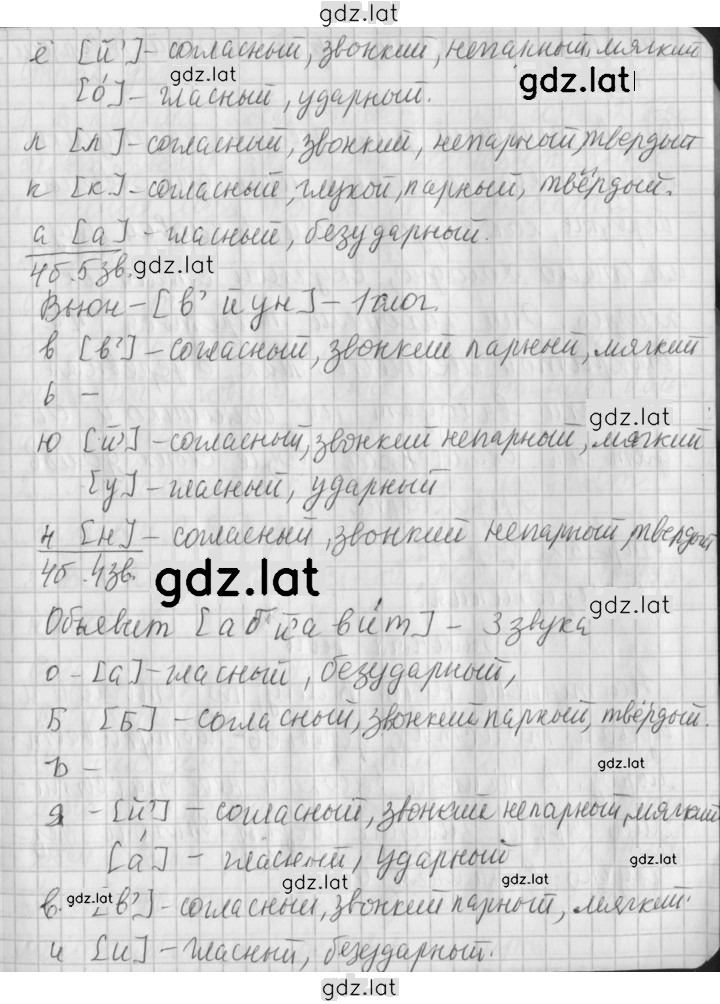 gdz.lat
ё [й'] - согласный, звонкий, непанный, мягкий
gdz.lat
[о́] - гласный, ударный.
gdz.lat
л [л] - согласный, звонкий, непарный, твердый
к [к] - согласный, глухой, парный, твёрдый.
а [а] - гласный, безударный.
4б. 5 зв. gdz.lat
Вьюн - [в' й у н] - 1 слог.
в [в'] - согласный, звонкий парный, мягкий
ь -
gdz.lat
ю [й'] - согласный, звонкий непарный, мягкий
[у] - гласный, ударный
н [н] - согласный, звонкий непарный твердый
4б. 4 зв.
gdz.lat
gdz.lat
Объявит [а б й а в и́ т] - 3 звука
о - [а] - гласный, безударный,
Б [Б] - согласный, звонкий парный, твёрдый.
ъ -
gdz.lat
я - [й'] - согласный, звонкий непарный, мягкий
[а́] - гласный, ударный
gdz.lat
gdz.lat
gdz.lat
в. gdz.lat [в'] - согласный, звонкий парный, мягкий.
и [и] - гласный, безударный.
gdz.lat